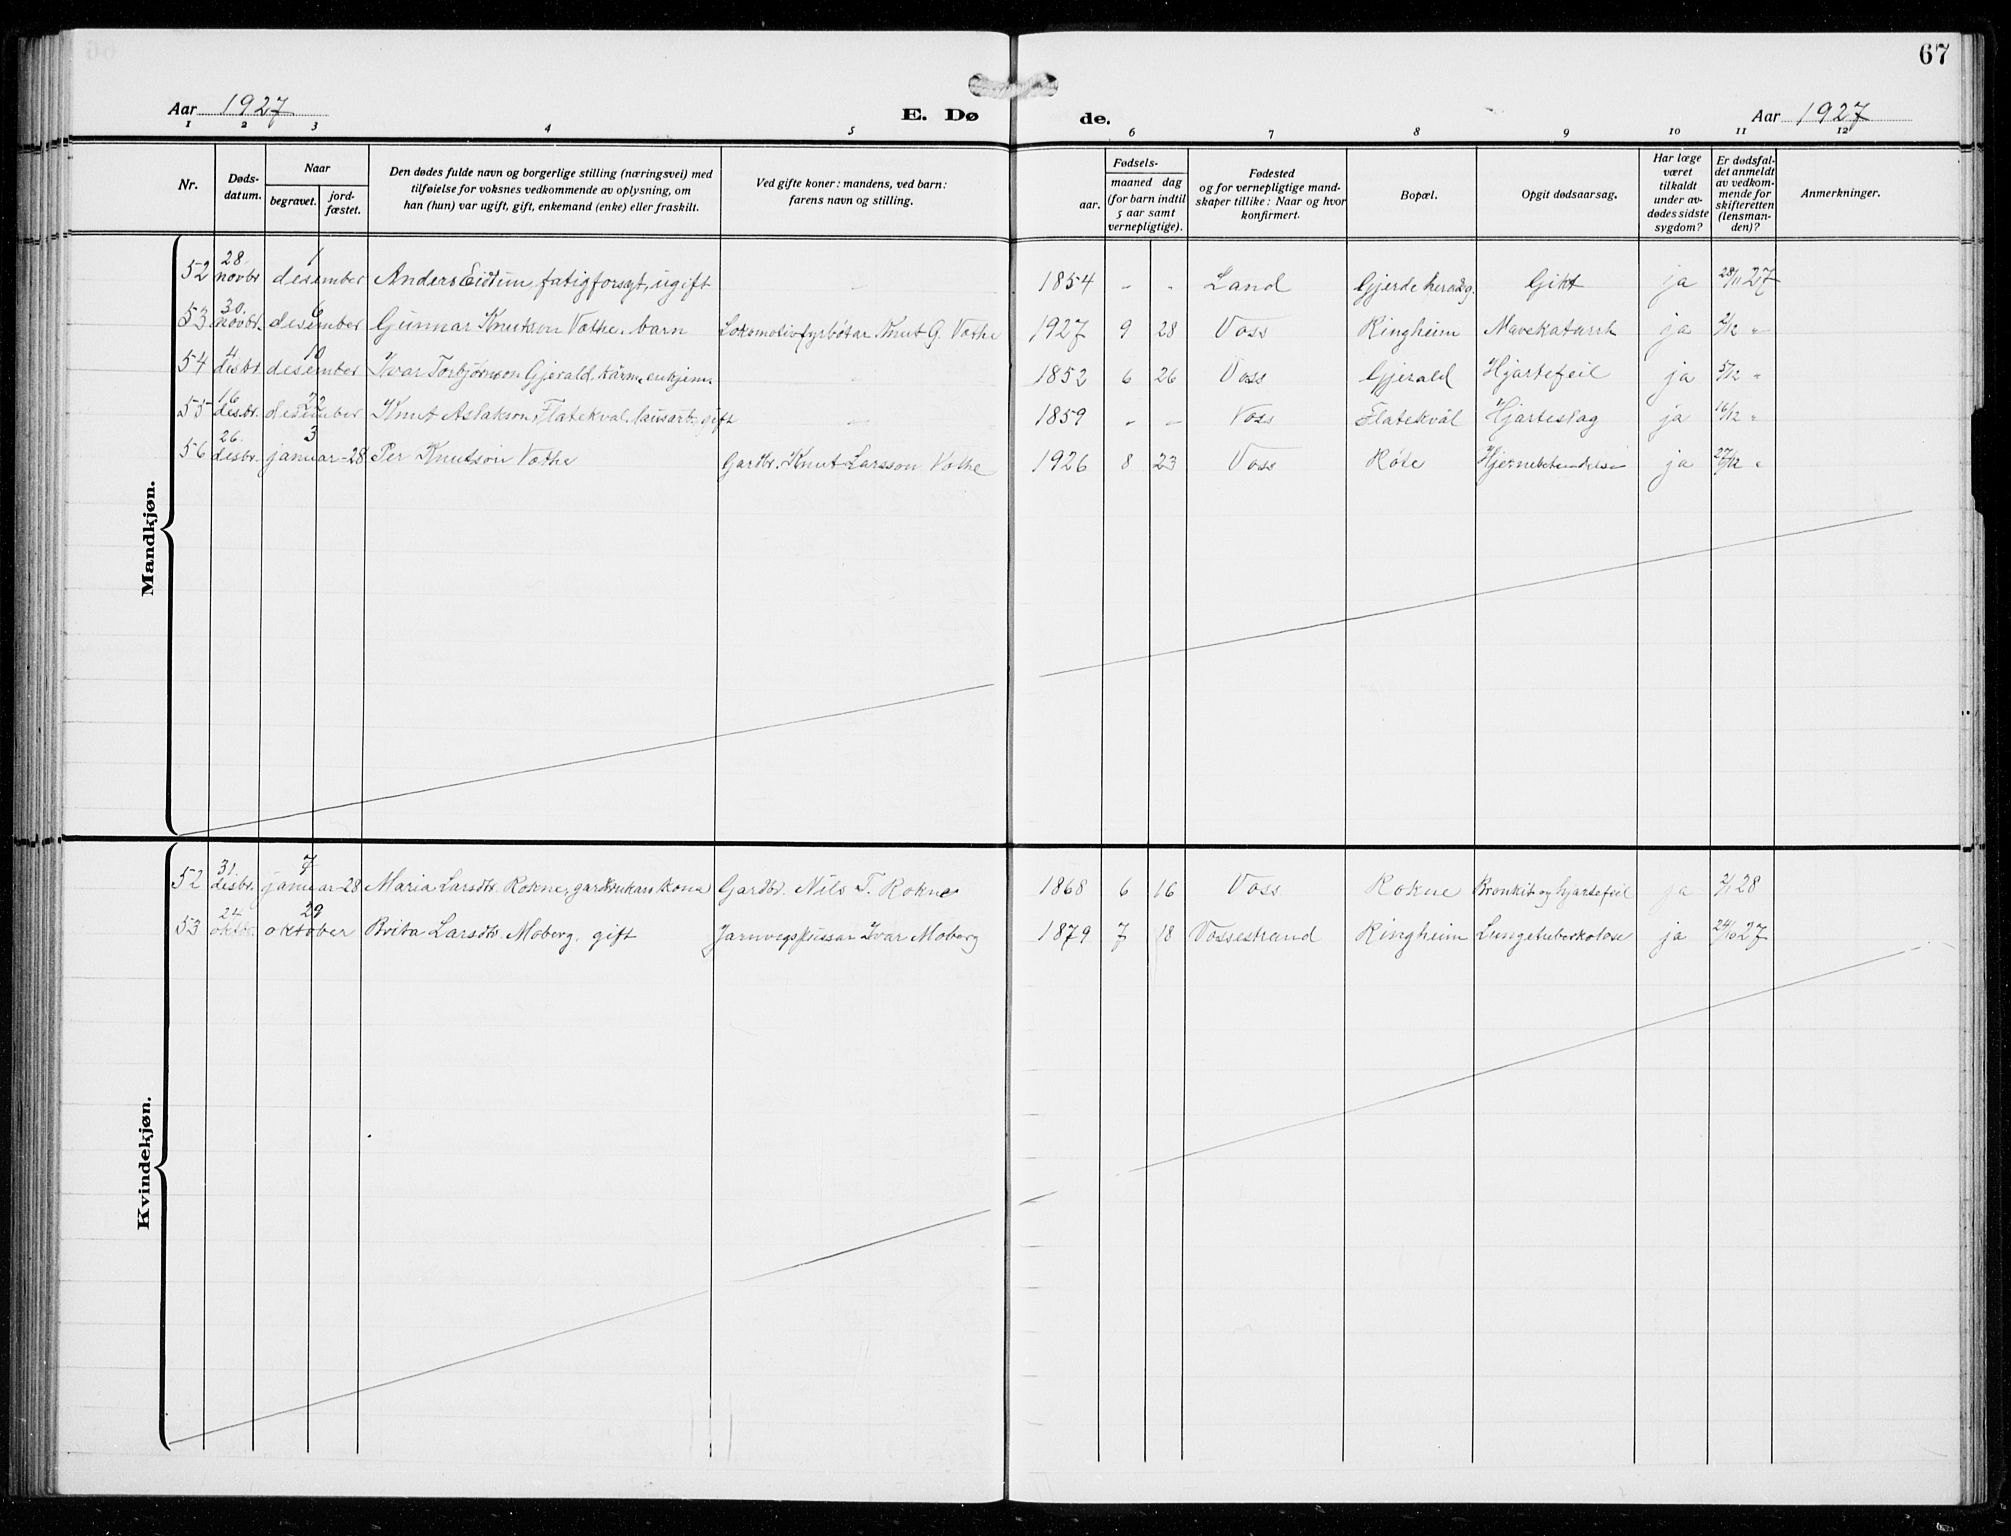 67
Aar 1927 E. Dø de. Aar 1927
1 2 3 4 5 6 7 8 9 10 11 12
Nr. Døds-datum. Naar begravet. jord-fæstet. Den dødes fulde navn og borgerlige stilling (næringsvei) med tilføielse for voksnes vedkommende av oplysning, om han (hun) var ugift, gift, enkemand (enke) eller fraskilt. Ved gifte koner: mandens, ved barn: farens navn og stilling. Fødsels- aar. maaned dag (for barn indtil 5 aar samt vernepligtige). Fødested og for vernepligtige mandskaper tillike: Naar og hvor konfirmert. Bopæl. Opgit dødsaarsag. Har læge været tilkaldt under avdødes sidste sygdom? Er dødsfaldet anmeldt av vedkommende for skifteretten (lensmanden)? Anmerkninger.
Mandkjøn.
52 28. novbr 1 desember Anders Eidtun, fatigforsgt, ugift – 1854 – – Land Gjerde Gikt ja 28/11 27
53 30. novbr. 6 desember Gunnar Knutson Vethe, barn Lokomotivfyrbøtar Knut G. Vethe 1927 9 28 Voss Ringheim Mavekatarrh ja 2/12 "
54 4 desbr. 10 desember Ivar Torbjørnson Gjerald, kårm. enkjem. – 1852 6 26 Voss Gjerald Hjartefeil ja 5/12 "
55 16 desbr. 22 desember Knut Aslakson Flatekval, lausarb., gift – 1859 – – Voss Flatekvål Hjarteslag ja 16/12 "
56 26. desbr. 3 januar-28 Per Knutson Vethe Gardbr. Knut Larsson Vethe 1926 8 23 Voss Røte Hjernebetendelse ja 27/12 "
Kvindekjøn.
52 31. desbr. 7 januar-28 Maria Larsdtr. Rokne, gardbrukarkona Gardbr. Nils T. Rokne 1868 6 16 Voss Rokne Bronkit og hjartefeil ja 2/1 28
53 24 oktbr. 29 oktober Brita Larsdtr. Moberg, gift Jarnvegspussar Ivar Moberg 1879 7 18 Vossestrand Ringheim Lungetuberkolose ja 24/10 27